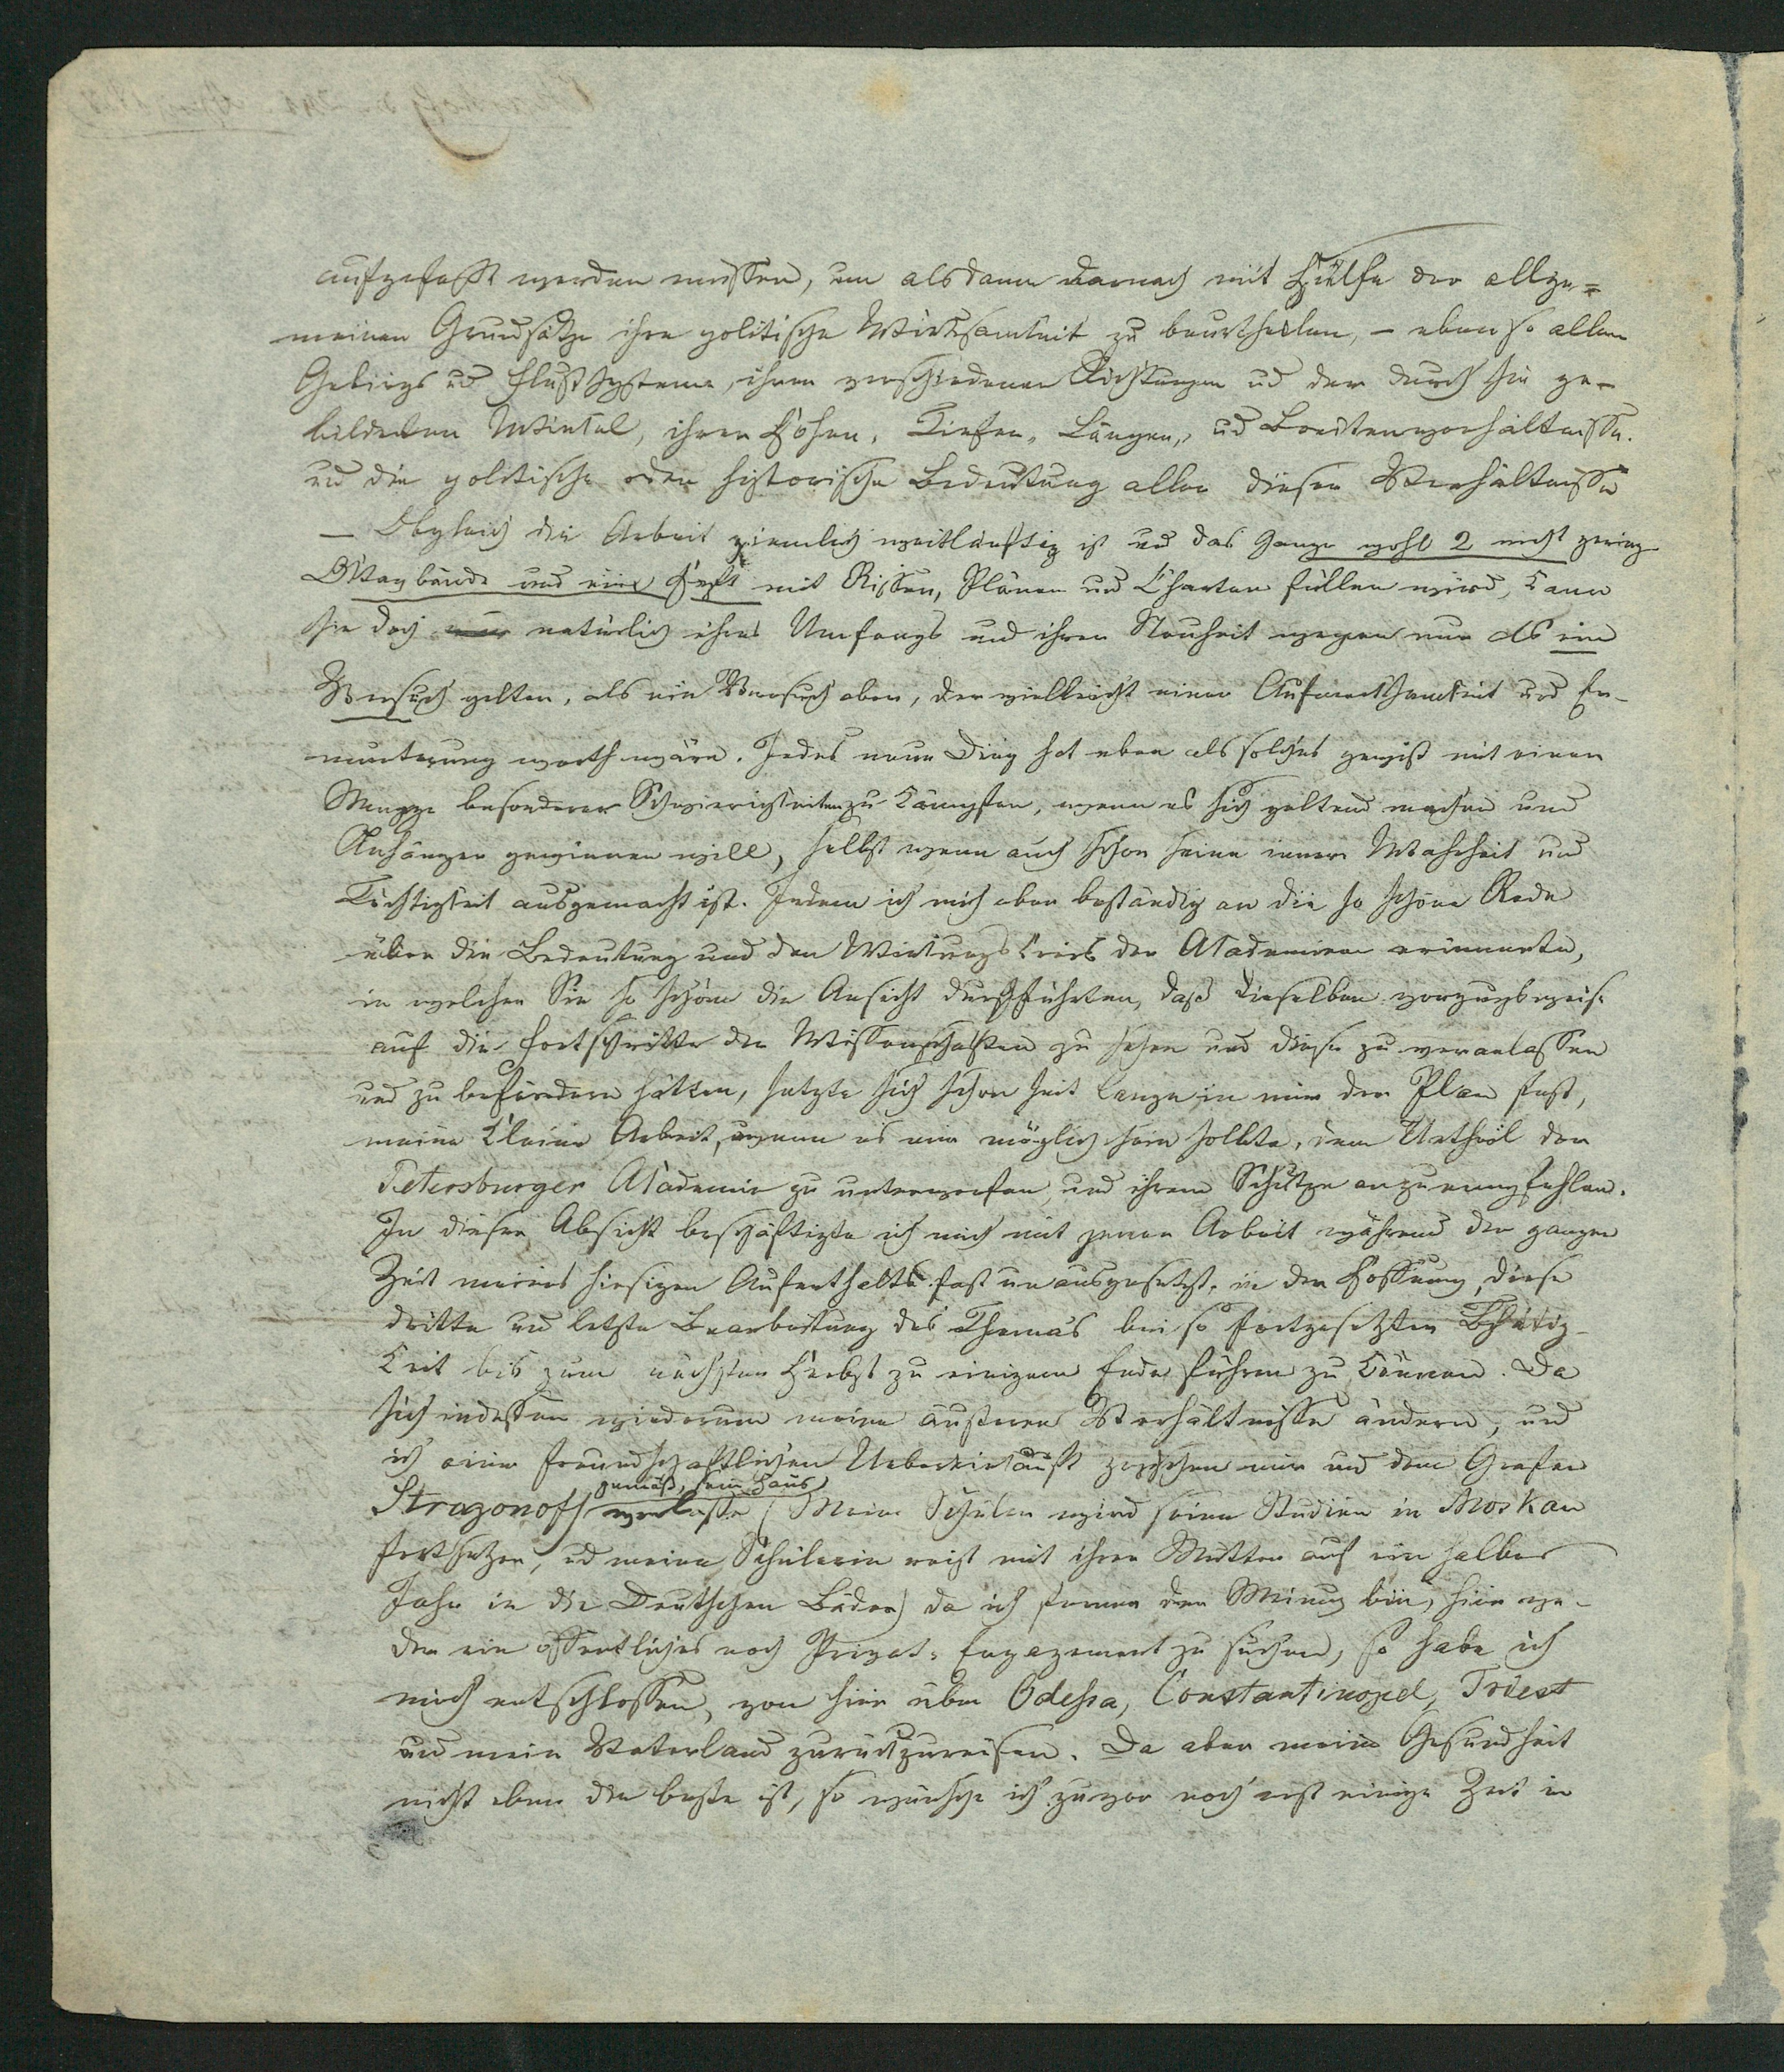 aufgefaßt werden müssen, um alsdann darnach mit Hülfe der allge=
meinen Grundsätze ihre politische Wirksamkeit zu beurtheilen, – eben so aller
Gebirgs und Flußsysteme, ihrer verschiedenen Richtungen ud der durch sie ge-
bildeten Winkel, ihrer Höhen, Tiefen, Längen, ud Breitenverhältnisse.
ud die politische oder historische Bedeutung aller dieser Verhältnisse
— Obgleich die Arbeit ziemlich weitläuftig ist ud das Ganze wohl 2 nicht geringe
Oktavbände und ein Heft mit Rissen, Plänen und Charten füllen wird, kann
sie doch natürlich ihres Umfangs und ihrer Neuheit wegen nur als ein
Versuch gelten, als ein Versuch aber, der vielleicht einer Aufmerksamkeit und Er-
munterung werth wäre. Jedes neue Ding hat eben als solches gewiß mit einer
Menge besonderer Schwierigkeiten zu kämpfen, wenn es sich geltend machen und
Anhänger gewinnen will, selbst wenn auch schon seine innere Wahrheit und
Tüchtigkeit ausgemacht ist. Indem ich mich aber beständig an die so schöne Rede
über die Bedeutung und den Wirkungskreis der Akademien erinnerte,
in welcher Sie so schön die Ansicht durchführten, daß dieselben vorzugsweise
auf die Fortschritte der Wissenschaften zu sehen und diese zu veranlassen
und zu befördern hätten, setzte sich schon seit lange in mir der Plan fest,
meine kleine Arbeit, wenn es mir möglich sein sollte, dem Urtheil der
Petersburger Akademie zu unterwerfen und ihrem Schutze anzuempfehlen.
In dieser Absicht beschäftigte ich mich mit jener Arbeit während der ganzen
Zeit meines hiesigen Aufenthalts fast unausgesetzt, in der Hoffnung, diese
dritte und letzte Bearbeitung des Themas bei so fortgesetzter Thätig-
keit bis zum nächsten Herbst zu einigem Ende führen zu können. Da
sich indessen wiederum meine äußeren Verhältnisse ändern, und
ich einer freundschaftlichen Uebereinkunft zwischen mir und dem Grafen
Stroganoff gemäß, sein Haus verlasse (Mein Schüler wird seine Studien in Moskau
fortsetzen, ud meine Schülerin reist mit ihrer Mutter auf ein halbes
Jahr in die Deutschen Bäder) da ich ferner der Meinung bin, hier we-
der ein öffentliches noch Privat-Engagement zu suchen, so habe ich
mich entschlossen, von hier über Odessa, Constantinopel, Triest
in mein Vaterland zurückzureisen. Da aber meine Gesundheit
nicht eben die beste ist, so wünsche ich zuvor noch erst einige Zeit in